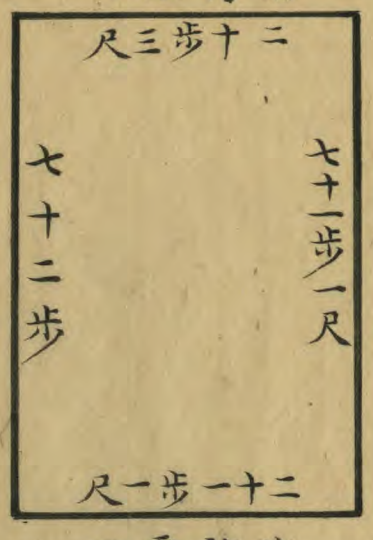 二十步三尺
七十一步一尺
七十二步
二十一步一尺